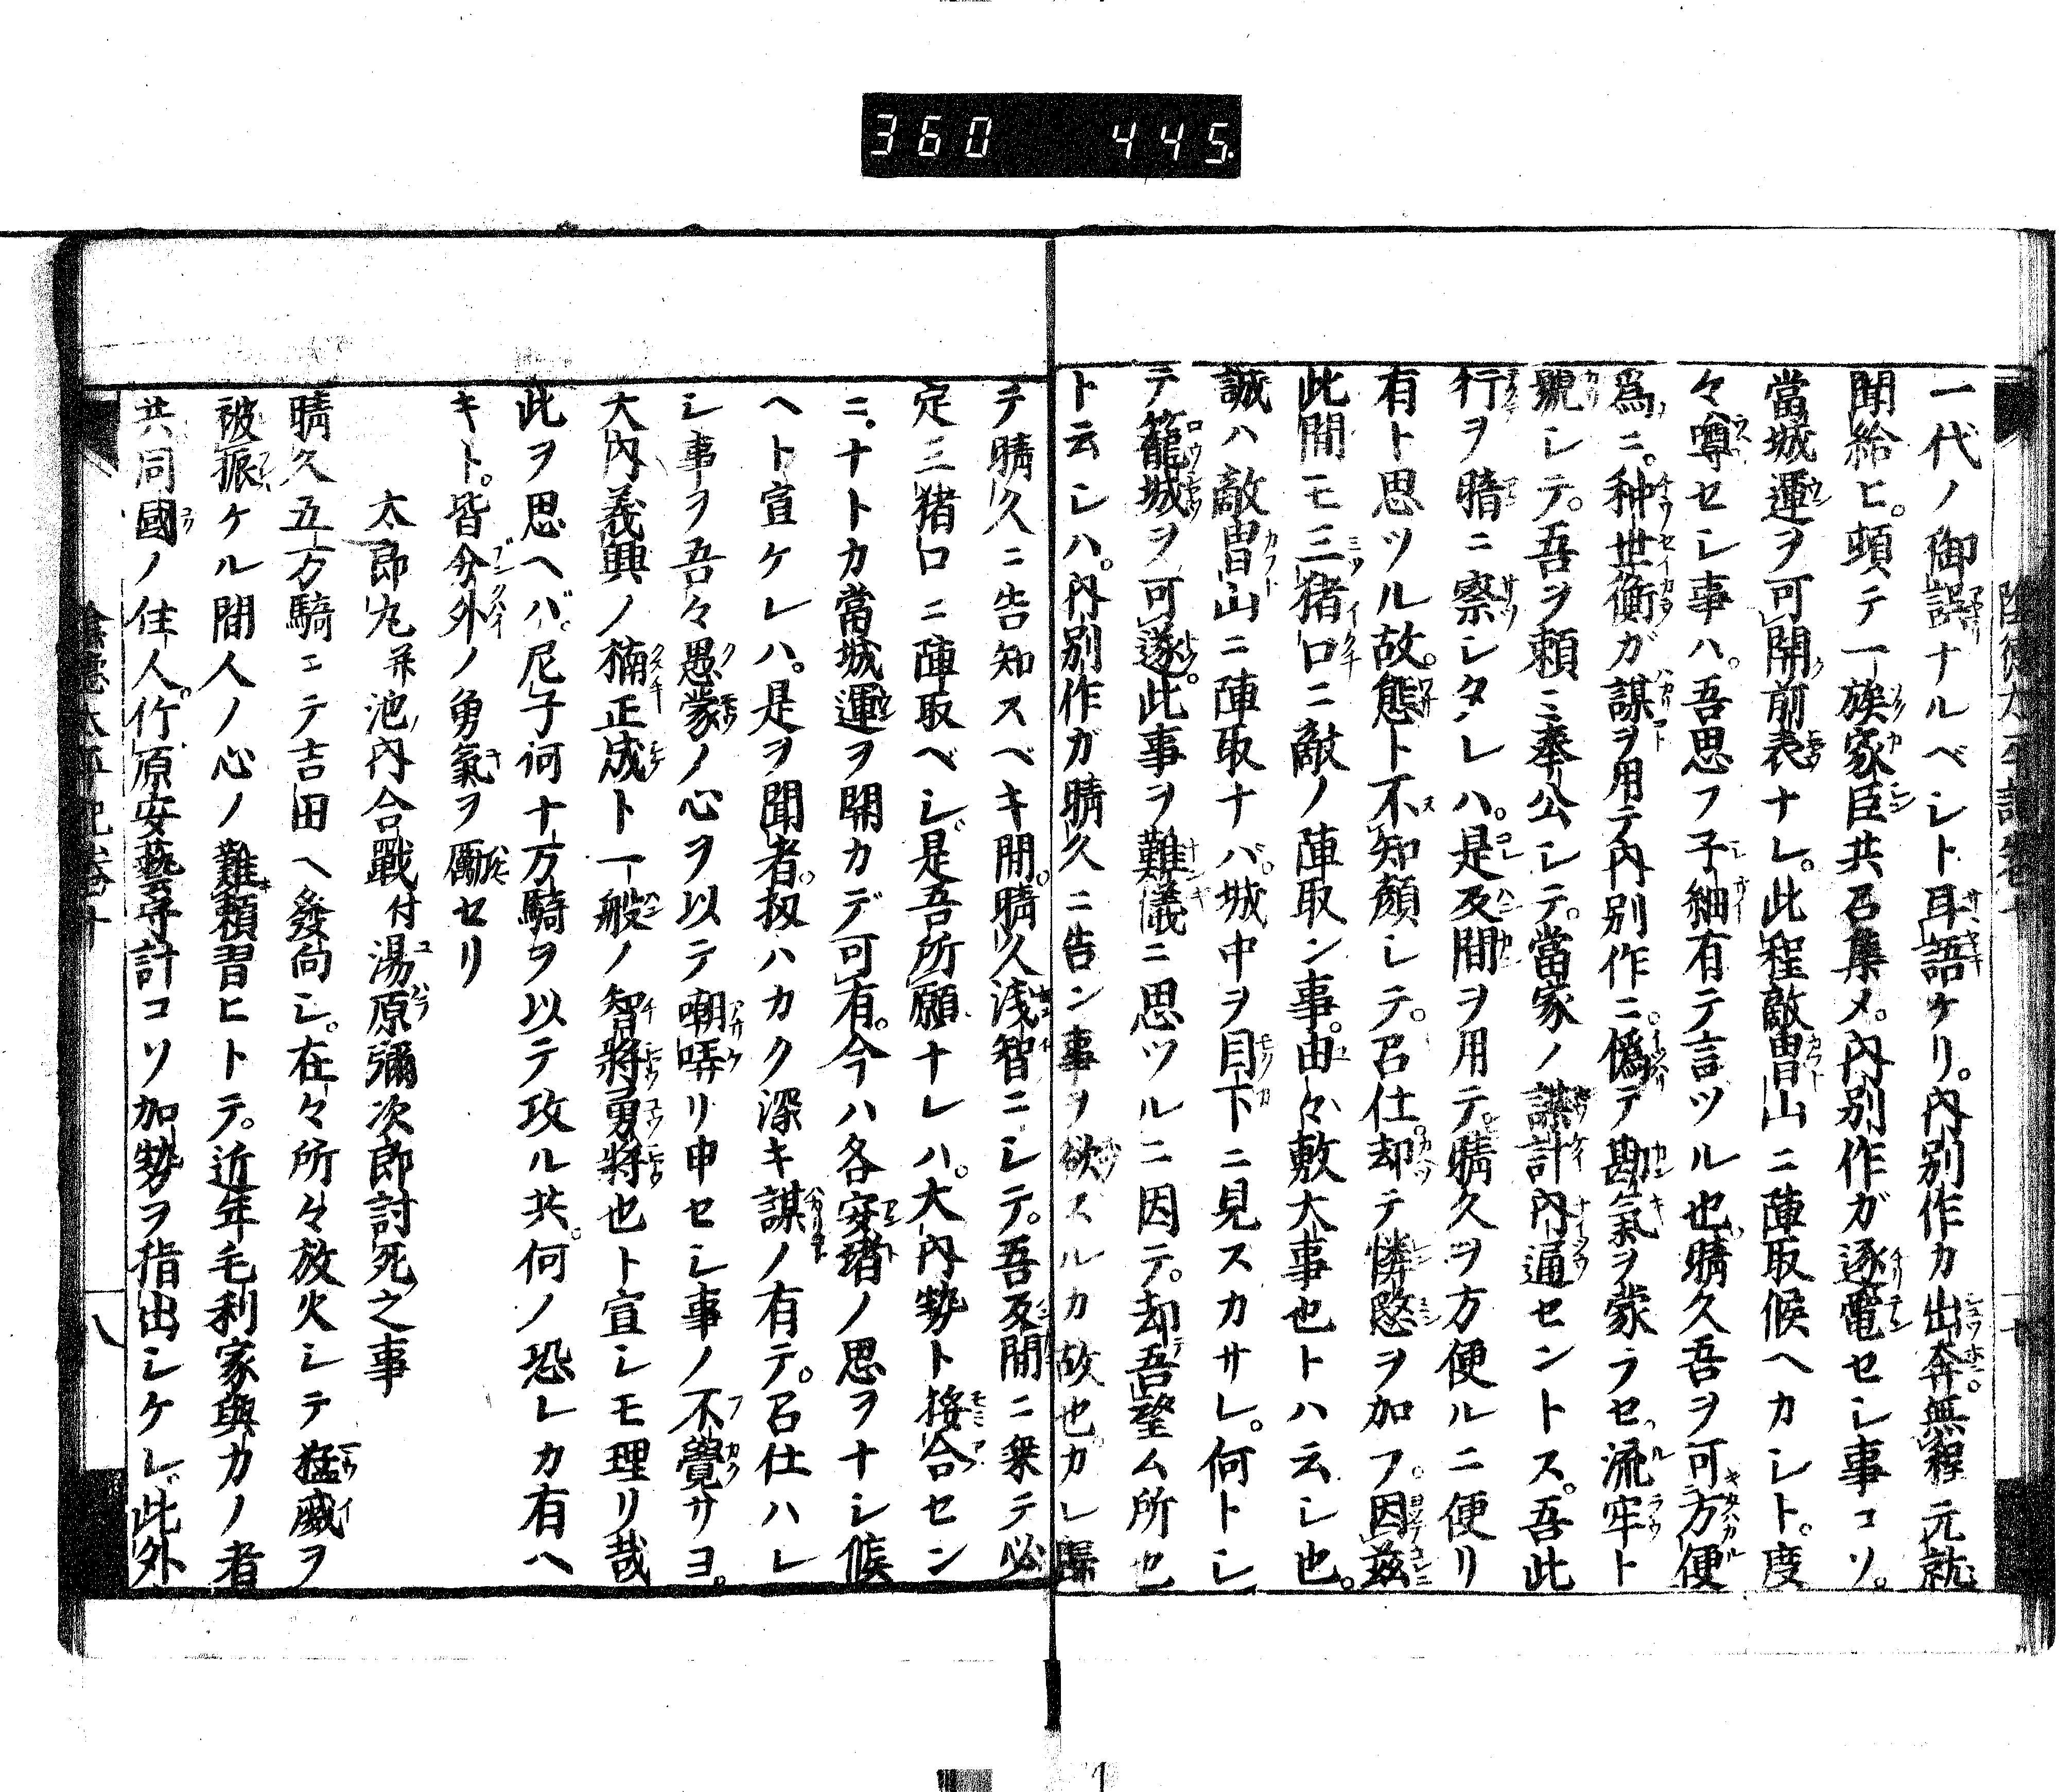 360 445.
一代ノ御誤ナルベシト耳語ケリ。内別作カ出奔無程元就
聞給ヒ。頓テ一族家臣共召集メ。内別作ガ逐電セシ事コソ。
當城運ヲ可開前表ナレ。此程敵曽山ニ陣取候ヘカシト。度
々噂セシ事ハ。吾思フ子細有テ言ツル也。晴久吾ヲ可方便
為ニ。种世衡ガ謀ヲ用テ内別作ニ。偽テ勘氣ヲ蒙ラセ流牢ト
號シテ。吾ヲ頼ミ奉公シテ。當家ノ謀計内通セントス。吾此
行ヲ暗ニ察シタレハ。是反間ヲ用テ。晴久ヲ方便ルニ便リ
有ト思ツル故。態ト不知顔シテ。召仕。却テ憐愍ヲ加フ。因茲
此間モ三猪口ニ敵ノ陣取ン事。由々敷大事也トハ云シ也。
誠ハ敵曽山ニ陣取ナバ。城中ヲ目下ニ見スカサレ。何トシ
テ籠城ヲ可遂。此事ヲ難儀ニ思ツルニ因テ。却吾望ム所也
ト云シハ。内別作ガ晴久ニ告ン事ヲ欲スルカ故也。カレ歸
テ晴久ニ告知スベキ間。晴久浅智ニシテ。吾反間ニ乗テ必
定三猪口ニ陣取ベシ。是吾所願ナレハ。大内勢ト接合セン
ニ。ナトカ當城運ヲ開カデ可有。今ハ各安堵ノ思ヲナシ候
ヘト宣ケレハ。是ヲ聞者。扨ハカク深キ謀ノ有テ。召仕ハレ
シ事ヲ吾々愚蒙ノ心ヲ以テ嘲哢リ申セシ事ノ不覺サヨ。
大内義興ノ楠正成ト一般ノ智將勇將也ト宣シモ理リ哉
此ヲ思ヘバ。尼子何十万騎ヲ以テ攻ル共。何ノ恐レカ有ヘ
キト。皆分外ノ勇氣ヲ勵セリ
太郎丸并池内合戰付湯原彌次郎討死之事
晴久五万騎ニテ吉田ヘ發向シ。在々所々放火シテ猛威ヲ
被振ケル間人ノ心ノ難頼習ヒトテ。近年毛利家與力ノ者
共同國ノ住人。竹原安藝專計コソ加勢ヲ指出シケレ。此外
八